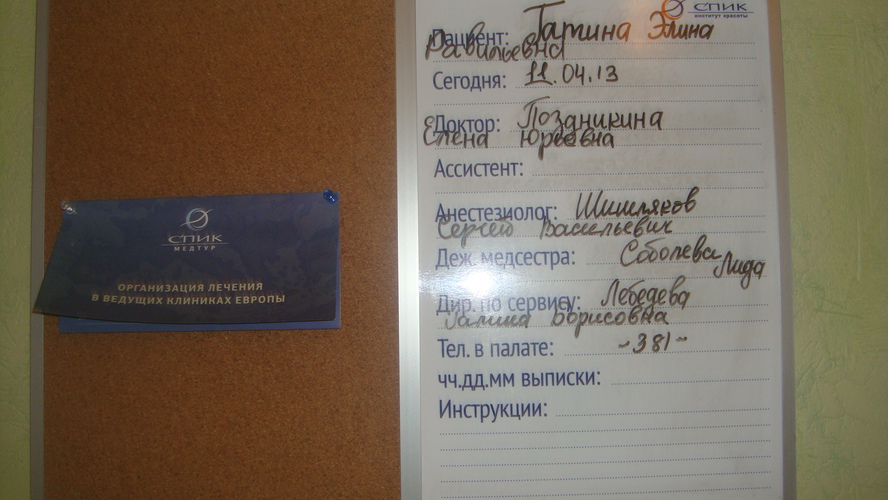 СПИК
МЕДТУР
ОРГАНИЗАЦИЯ ЛЕЧЕНИЯ
В ВЕДУЩИХ КЛИНИКАХ ЕВРОПЫ
СПИК
институт красоты
Пациент: Гатина Элина
Равильевна
Сегодня: 11.04.13
Доктор: Позданикина
Елена Юрьевна
Ассистент:
Анестезиолог: Шишляков
Сергей Васильевич
Деж. медсестра: Соболева
Лида
Дир. по сервису: Лебедева
Галина Борисовна
Тел. в палате: -381-
чч.дд.мм выписки:
Инструкции: